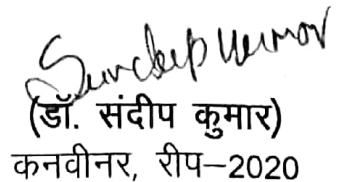 Sundeep Kumar
(डॉ. संदीप कुमार)
कनवीनर, रीप–2020